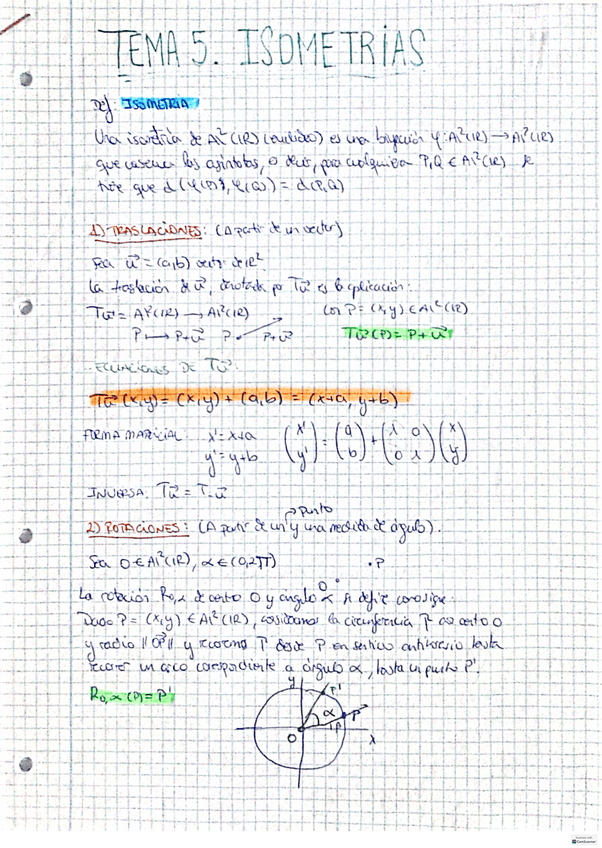 TEMA 5. ISOMETRÍAS
Def: ISOMETRIA
Una isometría de A²(IR) (euclídeo) es una biyección φ: A²(IR) → A²(IR)
que conserva las distancias, es decir, para cualquiera P,Q ∈ A²(IR) se
tiene que d(φ(P), φ(Q)) = d(P,Q)
1) TRASLACIONES: (A partir de un vector)
Sea u⃗ = (a,b) vector de IR².
La traslación de u⃗, denotada por Tu⃗ es la aplicación:
Tu⃗ = A²(IR) → A²(IR) con P = (x,y) ∈ A²(IR)
P ↦ P+u⃗ P P+u⃗ Tu⃗(P) = P + u⃗
ECUACIONES DE Tu⃗:
Tu⃗(x,y) = (x,y) + (a,b) = (x+a, y+b)
FORMA MATRICIAL: x' = x+a (x' y') = (a b) + (1 0 0 1)(x y)
y' = y+b
INVERSA: Tu⃗ = T-u⃗
→ punto
2) ROTACIONES: (A partir de un y una medida de ángulo).
Sea O ∈ A²(IR), α ∈ (0,2π) • P
O
La rotación RO,α de centro O y ángulo α se define como sigue:
Dado P = (x,y) ∈ A²(IR), consideramos la circunferencia Γ de centro O
y radio ||OP⃗|| y recorremos Γ desde P en sentido antihorario hasta
recorrer un arco correspondiente a ángulo α, hasta un punto P'.
RO,α(P) = P'
y P' α P β O x
CamScanner